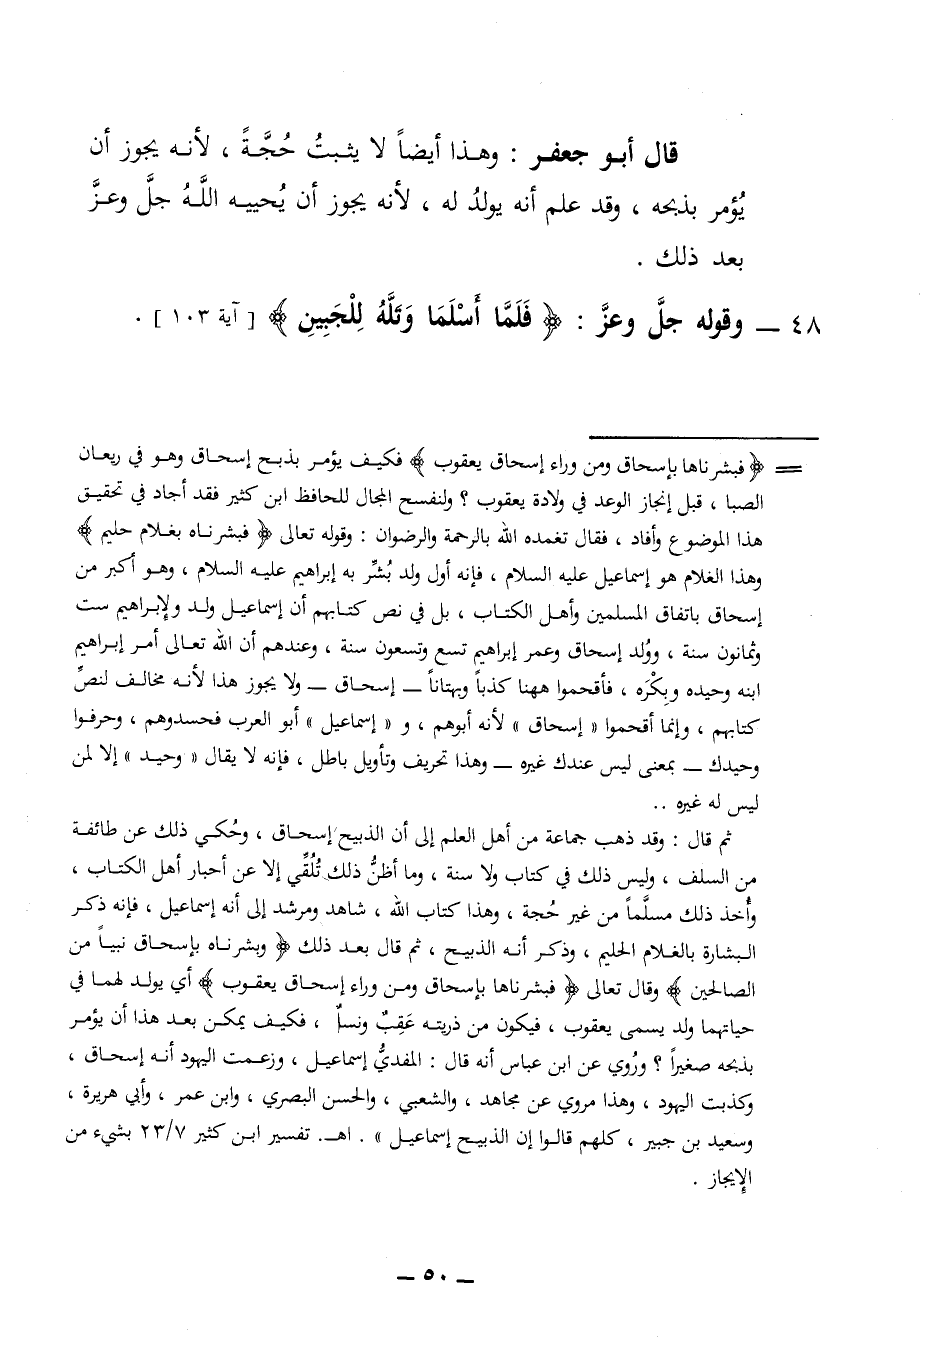 قال أبو جعفر : وهذا أيضاً لا يثبتُ حُجَّةً ، لأنه يجوز أن
يُؤمر بذبحه ، وقد علم أنه يولدُ له ، لأنه يجوز أن يُحييه اللَّهُ جلَّ وعزَّ
بعد ذلك .
٤٨ ــ وقوله جلَّ وعزَّ : ﴿ فَلَمَّا أَسْلَمَا وَتَلَّهُ لِلْجَبِينِ ﴾ [ آية ١٠٣ ] .
== ﴿ فبشرناها بإسحاق ومن وراء إسحاق يعقوب ﴾ فكيف يؤمر بذبح إسحاق وهو في ريعان
الصبا ، قبل إنجاز الوعد في ولادة يعقوب ؟ ولنفسح المجال للحافظ ابن كثير فقد أجاد في تحقيق
هذا الموضوع وأفاد ، فقال تغمده الله بالرحمة والرضوان : وقوله تعالى ﴿ فبشرناه بغلام حليم ﴾
وهذا الغلام هو إسماعيل عليه السلام ، فإنه أول ولد بُشِّر به إبراهيم عليه السلام ، وهو أكبر من
إسحاق باتفاق المسلمين وأهل الكتاب ، بل في نص كتابهم أن إسماعيل ولد ولإبراهيم ست
وثمانون سنة ، ووُلد إسحاق وعمر إبراهيم تسع وتسعون سنة ، وعندهم أن الله تعالى أمر إبراهيم
ابنه وحيده وبِكْرَه ، فأقحموا ههنا كذباً وبهتاناً ــ إسحاق ــ ولا يجوز هذا لأنه مخالف لنصِّ
كتابهم ، وإنما أقحموا « إسحاق » لأنه أبوهم ، و « إسماعيل » أبو العرب فحسدوهم ، وحرفوا
وحيدك ــ بمعنى ليس عندك غيره ــ وهذا تحريف وتأويل باطل ، فإنه لا يقال « وحيد » إلا لمن
ليس له غيره ..
ثم قال : وقد ذهب جماعة من أهل العلم إلى أن الذبيح إسحاق ، وحُكي ذلك عن طائفة
من السلف ، وليس ذلك في كتاب ولا سنة ، وما أظنُّ ذلك تُلُقِّي إلا عن أحبار أهل الكتاب ،
وأُخذ ذلك مسلَّماً من غير حُجة ، وهذا كتاب الله ، شاهد ومرشد إلى أنه إسماعيل ، فإنه ذكر
البشارة بالغلام الحليم ، وذكر أنه الذبيح ، ثم قال بعد ذلك ﴿ وبشرناه بإسحاق نبياً من
الصالحين ﴾ وقال تعالى ﴿ فبشرناها بإسحاق ومن وراء إسحاق يعقوب ﴾ أي يولد لهما في
حياتهما ولد يسمى يعقوب ، فيكون من ذريته عَقِبٌ ونسلٌ ، فكيف يمكن بعد هذا أن يؤمر
بذبحه صغيراً ؟ ورُوي عن ابن عباس أنه قال : المفديُّ إسماعيل ، وزعمت اليهود أنه إسحاق ،
وكذبت اليهود ، وهذا مروي عن مجاهد ، والشعبي ، والحسن البصري ، وابن عمر ، وأبي هريرة ،
وسعيد بن جبير ، كلهم قالوا إن الذبيح إسماعيل » . اهـ. تفسير ابن كثير ٢٣/٧ بشيء من
الإيجاز .
ــ ٥٠ ــ